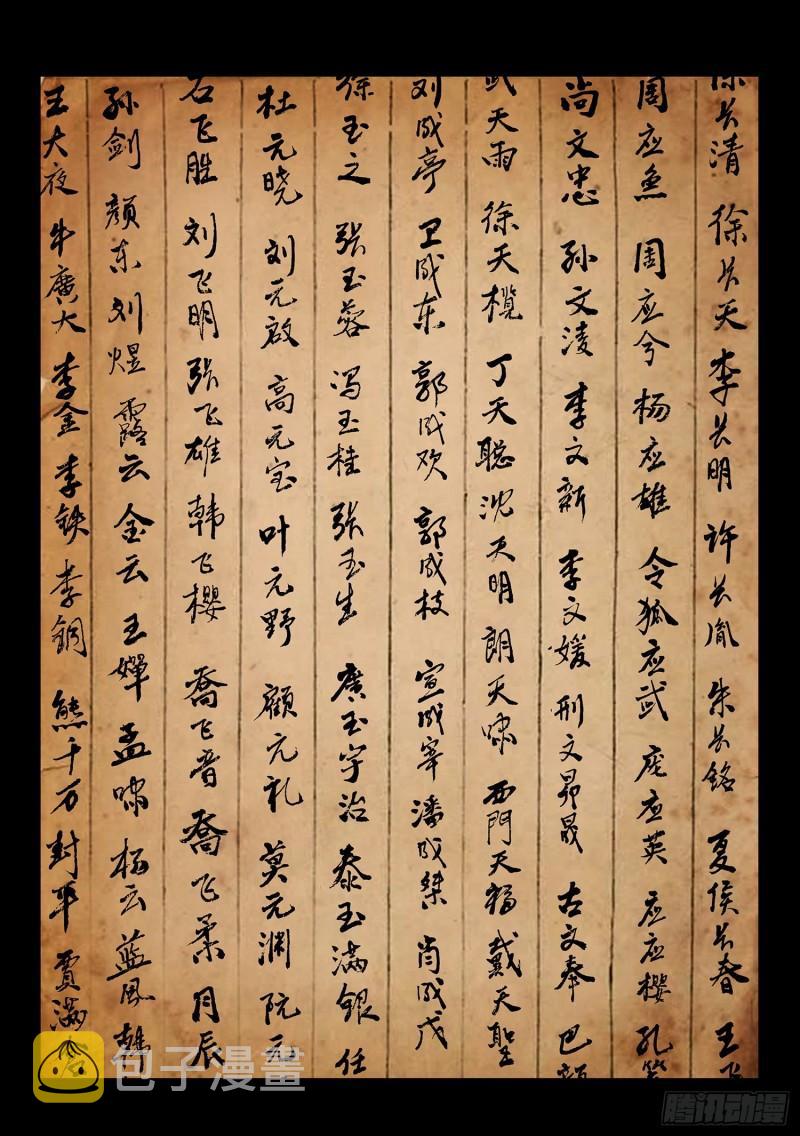 徐长清 徐长天 李长明 许长胤 朱长铭 夏侯长春 王飞
周应鱼 周应兮 杨应雄 令狐应武 庞应英 应应樱 孔
尚文忠 孙文凌 李文新 李文媛 刑文昴晟 古文奉 巴
武天雨 徐天榄 丁天聪 沈天明 朗天啸 西門天福 戴天聖
刘成亭 卫成东 郭成欢 郭成枝 宣成宰 潘成桀 肖成戊
徐玉之 張玉蓉 冯玉桂 張玉生 廣玉宇治 泰玉满银 任
杜元晓 刘元啟 高元宝 叶元野 顧元礼 莫元渊 阮元
石飞胜 刘飞明 張飞雄 韩飞樱 喬飞音 喬飞柔 月辰
孙剑 颜东 刘煜 露云 金云 王婵 孟啸 杨云 蓝凤
王大夜 牛廣大 李金 李铁 李铜 熊千万 封平 賈满
包子漫畫
腾讯动漫